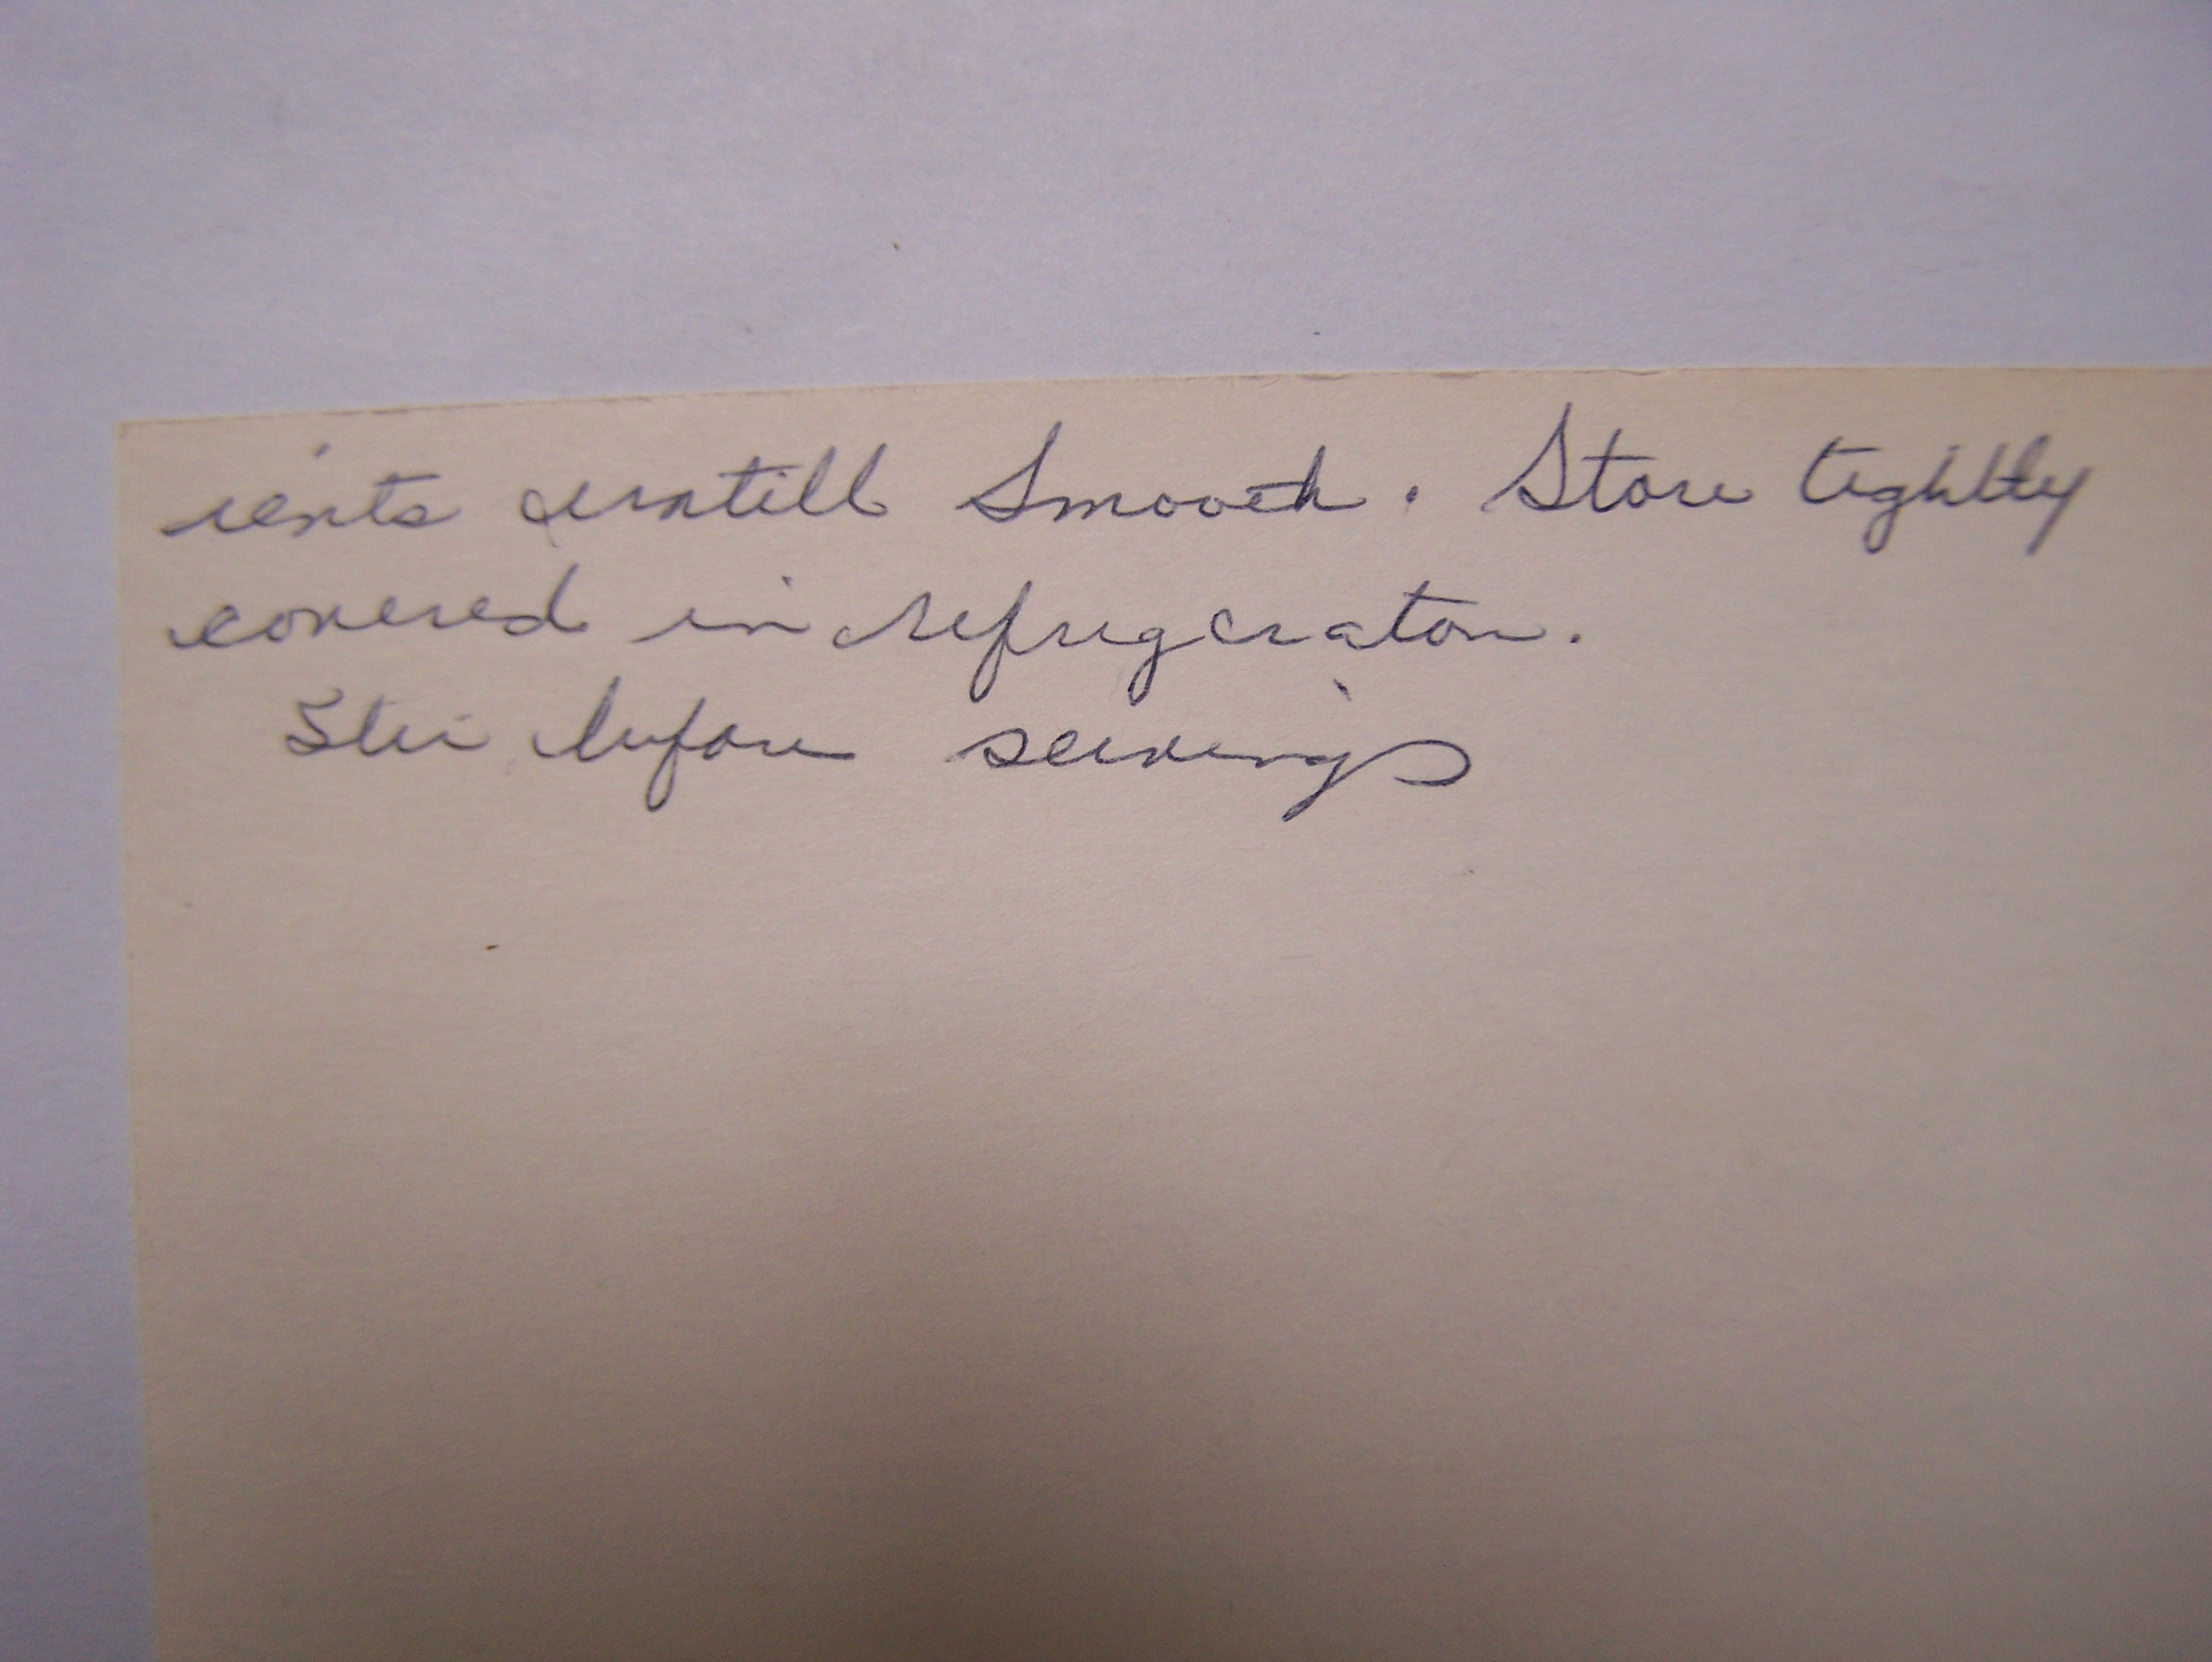 ients untill Smooth. Store tightly
covered in refrigerator.
Stir before serving